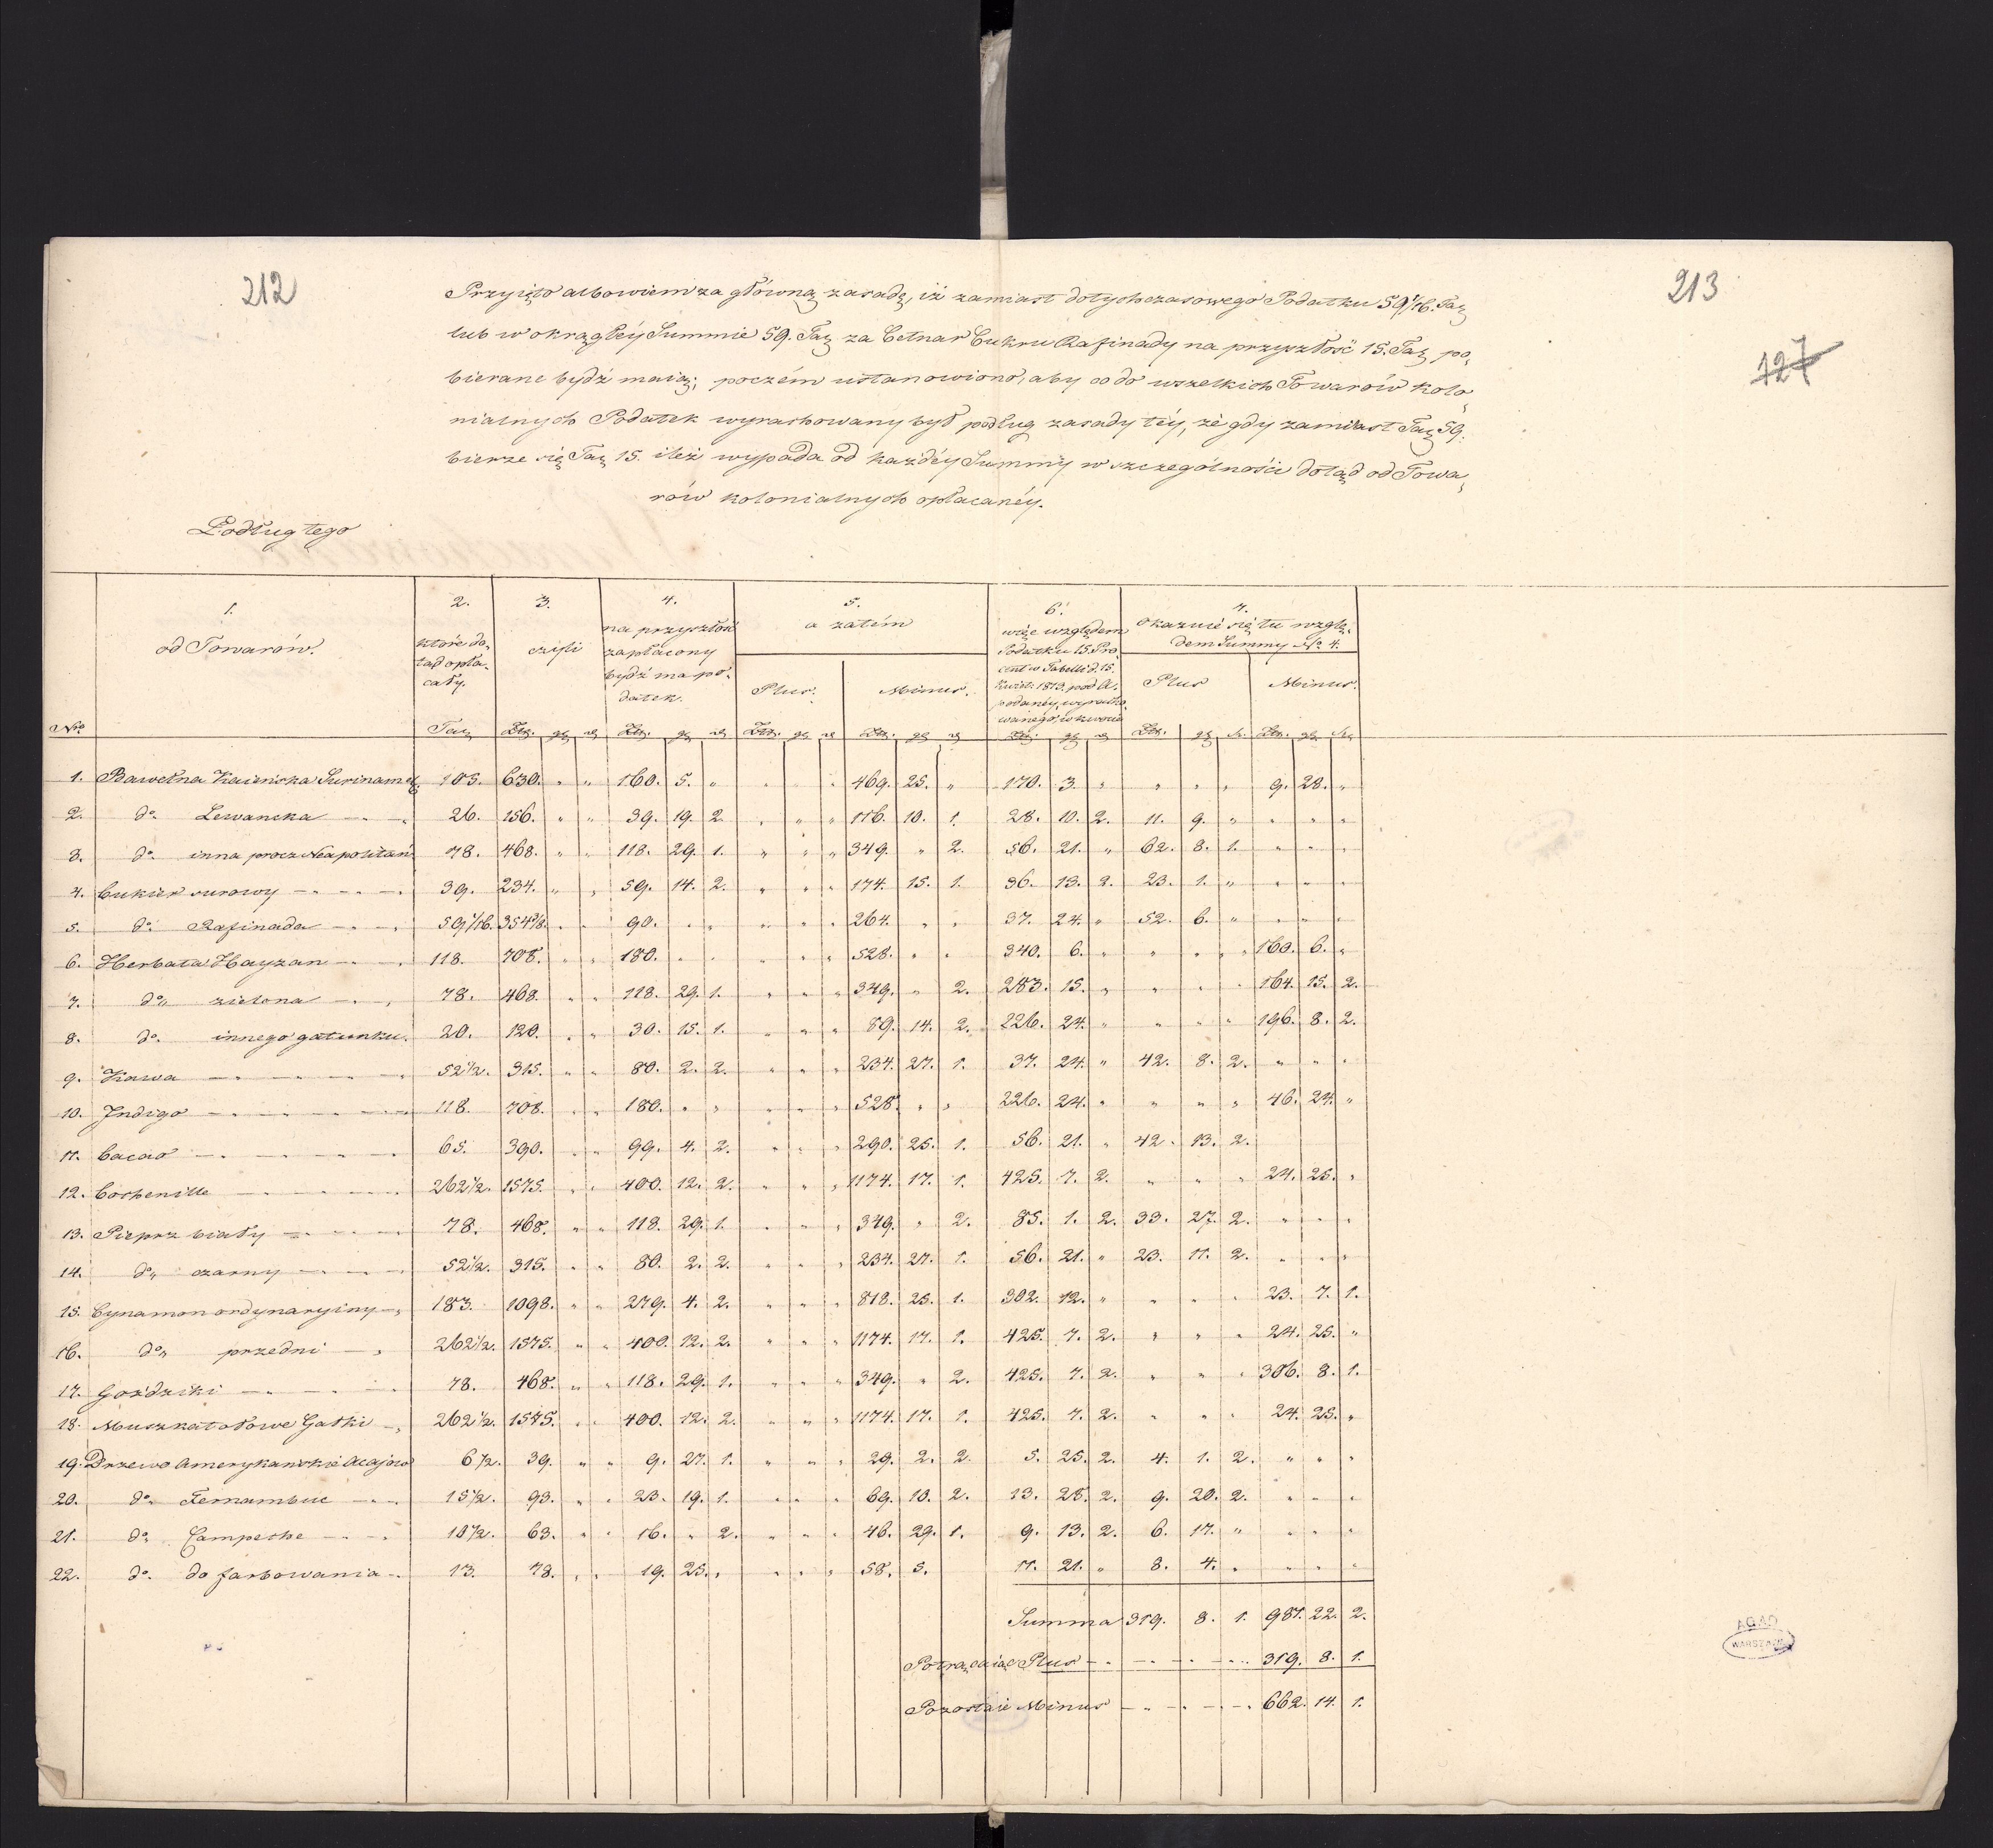 212
213
127
Przyięto albowiem za główną zasadę, iż zamiast dotychczasowego Podatku 59 1/16. Tal
lub w okrągłéy Summie 59. Tal za Cetnar Cukru Rafinady na przyszłość 15. Tal po,
bierane bydź maią; poczém ustanowiono, aby co do wszelkich Towarów kolo,
nialnych Podatek wyrachowany był podług zasady téy, że gdy zamiast Tal 59.
bierze się Tal 15. ileż wypada od każdéy Summy w szczególności dotąd od Towa,
rów kolonialnych opłacanéy.
Podług tego
1. 2. 3. 4. 5. 6. 7.
od Towarów. które do, tąd opła, cały. czyli na przyszłość zapłacony bydź ma po, datek. a zatém więc względem Podatku 15. Pro, cent w Tabelli d. 15. Kwiet: 1813. pod A. podanéy, wyracho, wanego, w kwocie okazuie się tu wzglę, dem Summy No 4.
Plus. Minus. Plus Minus.
No Tal Złt. gr Złt. gr Złt. gr Złt. gr Złt. gr Złt. gr Złt. gr
1. Bawełna Kaieńska Surinamsk. 105. 630. " " 160. 5. " " " " 469. 25. " 170. 3. " " " " 9. 28. "
2. do Lewancka 26. 156. " " 39. 19. 2. " " " 116. 10. 1. 28. 10. 2. 11. 9. " " " "
3. do inna procz Neapolitań 78. 468. " " 118. 29. 1. " " " 349. " 2. 56. 21. " 62. 8. 1. " " "
4. Cukier surowy 39. 234. " " 59. 14. 2. " " " 174. 15. 1. 36. 13. 2. 23. 1. " " " "
5. do Rafinada 59 1/16. 354 3/8. " " 90. " " " " " 264. " " 37. 24. " 52. 6. " " " "
6. Herbata Hayzan 118. 708. " " 180. " " " " " 528. " " 340. 6. " " " " 160. 6. "
7. do" zielona 78. 468. " " 118. 29. 1. " " " 349. " 2. 283. 15. " " " " 164. 15. 2.
8. do innego gatunku. 20. 120. " " 30. 15. 1. " " " 89. 14. 2. 226. 24. " " " " 196. 8. 2.
9. Kawa 52 1/2. 315. " " 80. 2. 2. " " " 234. 27. 1. 37. 24. " 42. 8. 2. " " "
10. Indigo 118. 708. " " 180. " " " " " 528. " " 226. 24. " " " " 46. 24. "
11. Cacao 65. 390. " " 99. 4. 2. " " " 290. 25. 1. 56. 21. " 42. 13. 2.
12. Coshenille 262 1/2. 1575. " " 400. 12. 2. " " " 1174. 17. 1. 425. 7. 2. " " " 24. 25. "
13. Pieprz biały 78. 468. " " 118. 29. 1. " " " 349. " 2. 85. 1. 2. 33. 27. 2. " " "
14. do" czarny 52 1/2. 315. " " 80. 2. 2. " " " 234. 27. 1. 56. 21. " 23. 11. 2. " " "
15. Cynamon ordynaryiny 183. 1098. " " 279. 4. 2. " " " 818. 25. 1. 302. 12. " " " " 23. 7. 1.
16. do" przedni 262 1/2. 1575. " " 400. 12. 2. " " " 1174. 17. 1. 425. 7. 2. " " " 24. 25. "
17. Goździki 78. 468. " " 118. 29. 1. " " " 349. " 2. 425. 7. 2. " " " 306. 8. 1.
18. Muszkatołowe Gałki 262 1/2. 1575. " " 400. 12. 2. " " " 1174. 17. 1. 425. 7. 2. " " " 24. 25. "
19. Drzewo Amerykańskie Acajou 6 1/2. 39. " " 9. 27. 1. " " " 29. 2. 2. 5. 25. 2. 4. 1. 2. " " "
20. do" Fernambuc 15 1/2. 93. " " 23. 19. 1. " " " 69. 10. 2. 13. 28. 2. 9. 20. 2. " " "
21. do" Campeshe 10 1/2. 63. " " 16. " 2. " " " 46. 29. 1. 9. 13. 2. 6. 17. " " " "
22. do. do farbowania 13. 78. " " 19. 25. " " " " 58. 5. 11. 21. " 8. 4. " " " "
Summa 319. 8. 1. 981. 22. 2.
Potrącaiąc Plus 319. 8. 1.
Pozostaie Minus 662. 14. 1.
AGAD
WARSZAWA